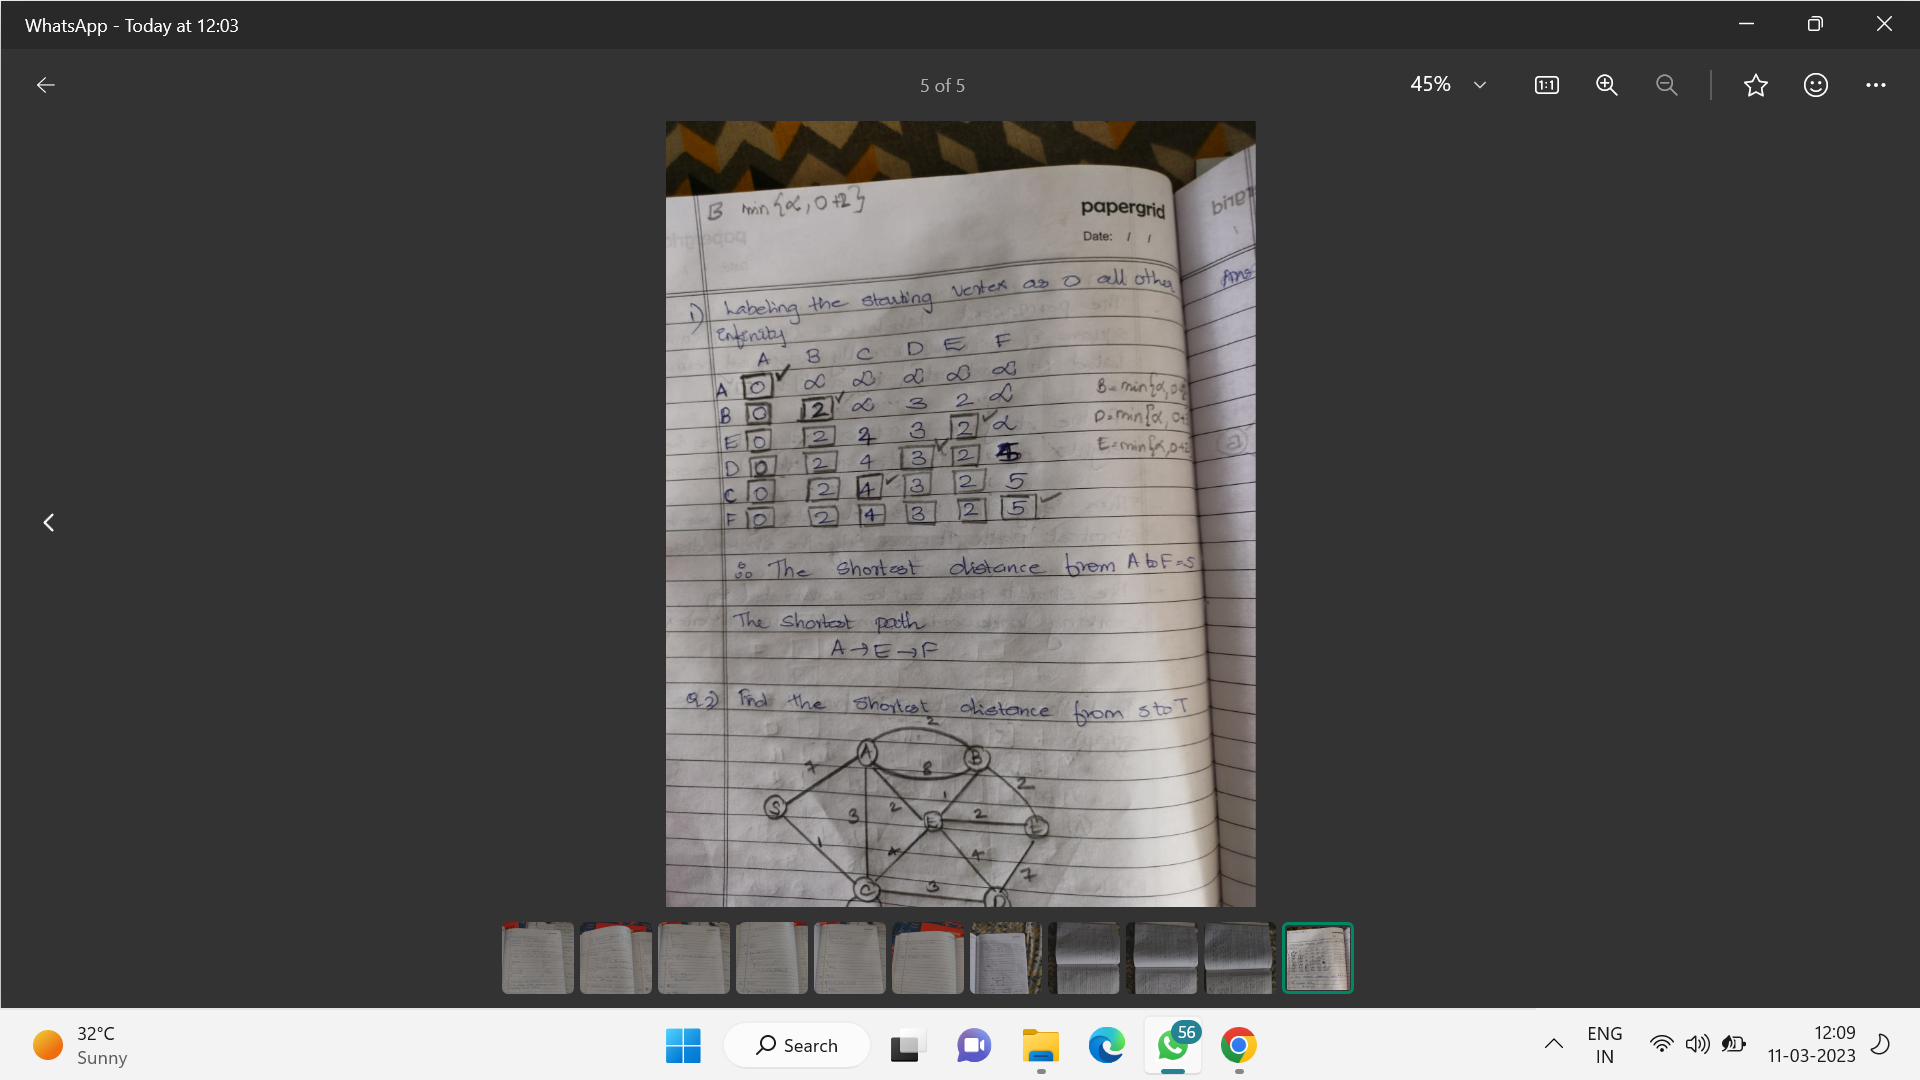 WhatsApp - Today at 12:03
5 of 5
45%
1:1
B min{∝, 0+2}
papergrid
Date: / /
1) Labeling the starting vertex as 0 all other
infinity
A B C D E F
A 0 ∞ ∞ ∞ ∞ ∞
B 0 2 ∞ 3 2 ∞
E 0 2 4 3 2 ∞
D 0 2 4 3 2 5
C 0 2 4 3 2 5
F 0 2 4 3 2 5
B = min{∝, 0+2
D = min{∝, 0+
E = min{∝, 0+2
Ans
∴ The shortest distance from A to F = 5
The shortest path
A → E → F
Q2) Find the shortest distance from S to T
2
A B
7 8 2
S 3 2 1 E 2 E
1 4 4 7
C 3 D
32°C
Sunny
Search
56
ENG
IN
12:09
11-03-2023